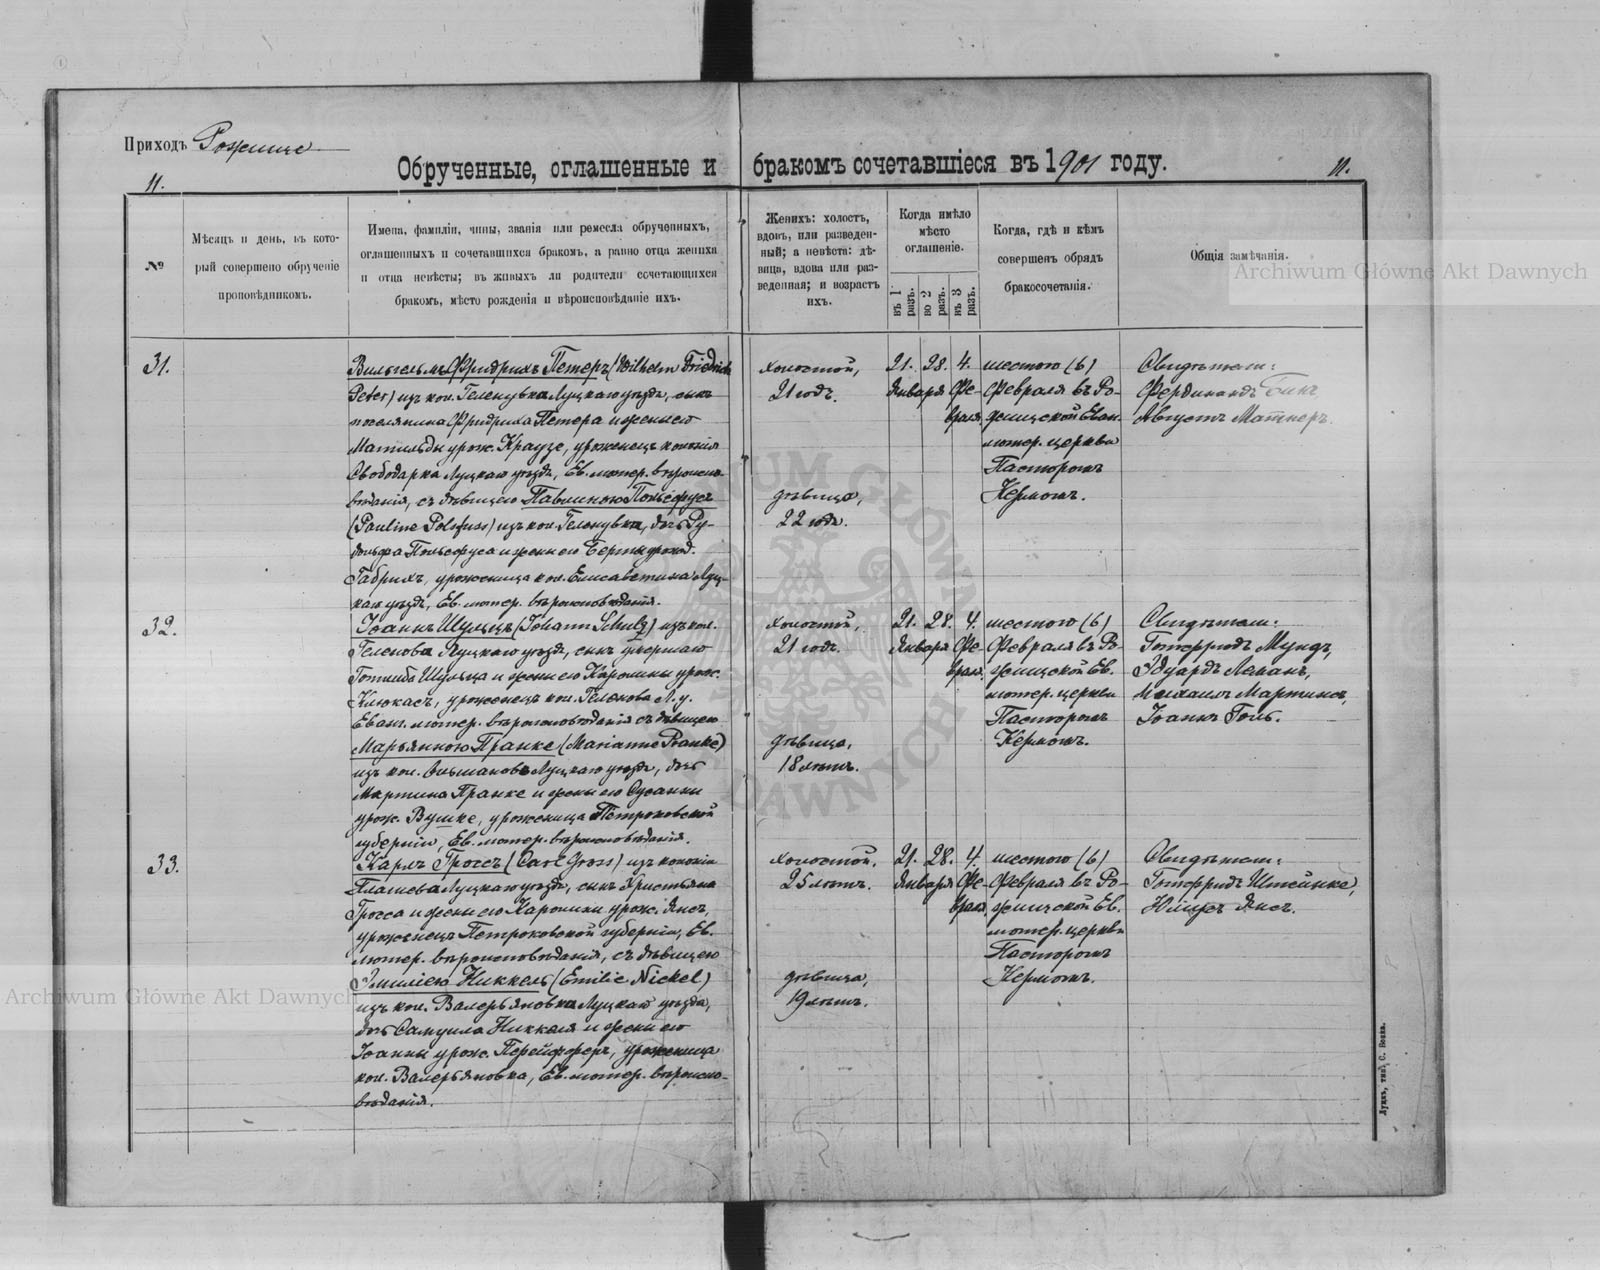 Приходъ Рожище
11.
Обрученные, оглашенные и бракомъ сочетавшіеся въ 1901 году.
11.
№
Мѣсяцъ и день, въ кото-
рый совершено обрученіе
проповѣдникомъ.
Имена, фамиліи, чины, званія или ремесла обрученныхъ,
оглашенныхъ и сочетавшихся бракомъ, а равно отца жениха
и отца невѣсты; въ живыхъ ли родители сочетающихся
бракомъ, мѣсто рожденія и вѣроисповѣданіе ихъ.
Женихъ: холостъ,
вдовъ, или разведен-
ный; а невѣста: дѣ-
вица, вдова или раз-
веденная; и возрастъ
ихъ.
Когда имѣло
мѣсто
оглашеніе.
въ 1 разъ.
во 2 разъ.
въ 3 разъ.
Когда, гдѣ и кѣмъ
совершенъ обрядъ
бракосочетанія.
Общія замѣчанія.
Archiwum Główne Akt Dawnych
31.
Вильгельмъ Фридрихъ Петеръ (Wilhelm Friedrich
Peter) изъ кол. Геленувка Луцкаго уѣзда, сынъ
поселянина Фридриха Петера и жены его
Матильды урож. Краузе, уроженецъ колоніи
Свободарка Луцкаго уѣзда, Ев. лютер. вѣроиспо-
вѣданія, съ дѣвицею Павлиною Польсфусъ
(Pauline Polsfuss) изъ кол. Геленувка, дочь Ру-
дольфа Польсфуса и жены его Берты урожд.
Габрихъ, уроженица кол. Елисаветина Луц-
каго уѣзда, Ев. лютер. вѣроисповѣданія.
холостой,
21 годъ.
дѣвица,
22 года.
21. 28. 4.
Января Фе-
враля.
шестого (6)
Февраля въ Ро-
жищской Еван.
лютер. церкви
Пасторомъ
Кермомъ.
Свидѣтели:
Фердинандъ Бинъ
Августъ Матнеръ.
32.
Іоаннъ Шульцъ (Johann Schulz) изъ кол.
Геленова Луцкаго уѣзда, сынъ умершаго
Готлиба Шульца и жены его Каролины урож.
Клюкасъ, уроженецъ кол. Геленова Л. у.
Еванг. лютер. вѣроисповѣданія съ дѣвицею
Марьянною Пранке (Marianne Pranke)
изъ кол. Ольшановка Луцкаго уѣзда, дочь
Мартина Пранке и жены его Сусанны
урож. Вушке, уроженица Петроковской
губерніи, Ев. лютер. вѣроисповѣданія.
холостой,
21 годъ.
дѣвица,
18 лѣтъ.
21. 28. 4.
Января Фе-
враля.
шестого (6)
Февраля въ Ро-
жищской Ев.
лютер. церкви
Пасторомъ
Кермомъ.
Свидѣтели:
Готфридъ Мундъ,
Эдуардъ Леманъ,
Михаилъ Мартинсъ,
ІоаннъГоль.
33.
Карлъ Гроссъ (Carl Gross) изъ колоніи
Плашева Луцкаго уѣзда, сынъ Христьяна
Гросса и жены его Каролины урож. Янсъ,
уроженецъ Петроковской губерніи, Ев.
лютер. вѣроисповѣданія, съ дѣвицею
Эмиліею Никкель (Emilie Nickel)
изъ кол. Валерьяновка Луцкаго уѣзда,
дочь Самуила Никкеля и жены его
Іоанны урож. Перейфферъ, уроженица
кол. Валерьяновка, Ев. лютер. вѣроиспо-
вѣданія.
холостой.
25 лѣтъ.
дѣвица,
19 лѣтъ.
21. 28. 4.
Января Фе-
враля.
шестого (6)
Февраля въ Ро-
жищской Ев.
лютер. церкви
Пасторомъ
Кермомъ.
Свидѣтели:
Готфридъ Штейнке,
Юліусъ Янсъ.
Archiwum Główne Akt Dawnych
Луцкъ, тип. С. Бонка.